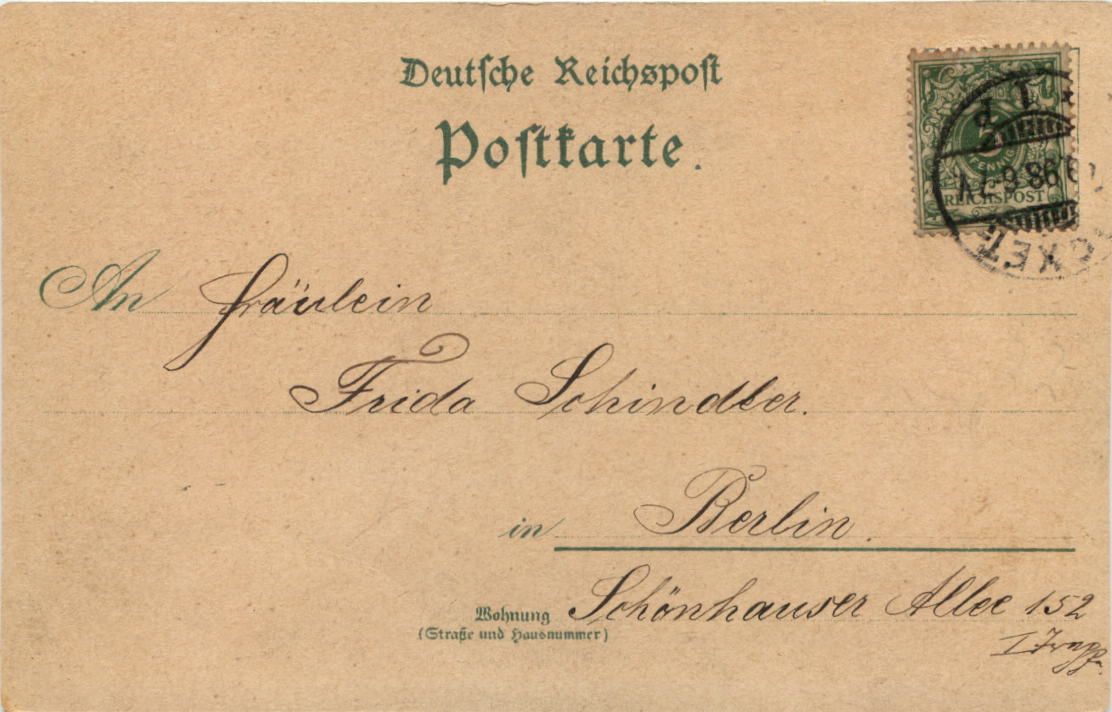 Deutsche Reichspost
Postkarte.
5
PFENNIG
REICHSPOST
98 6-7 V.
An Fräulein
Frida Schindler.
in Berlin.
Wohnung Schönhauser Allee 152
(Straße und Hausnummer)
I Trepp.